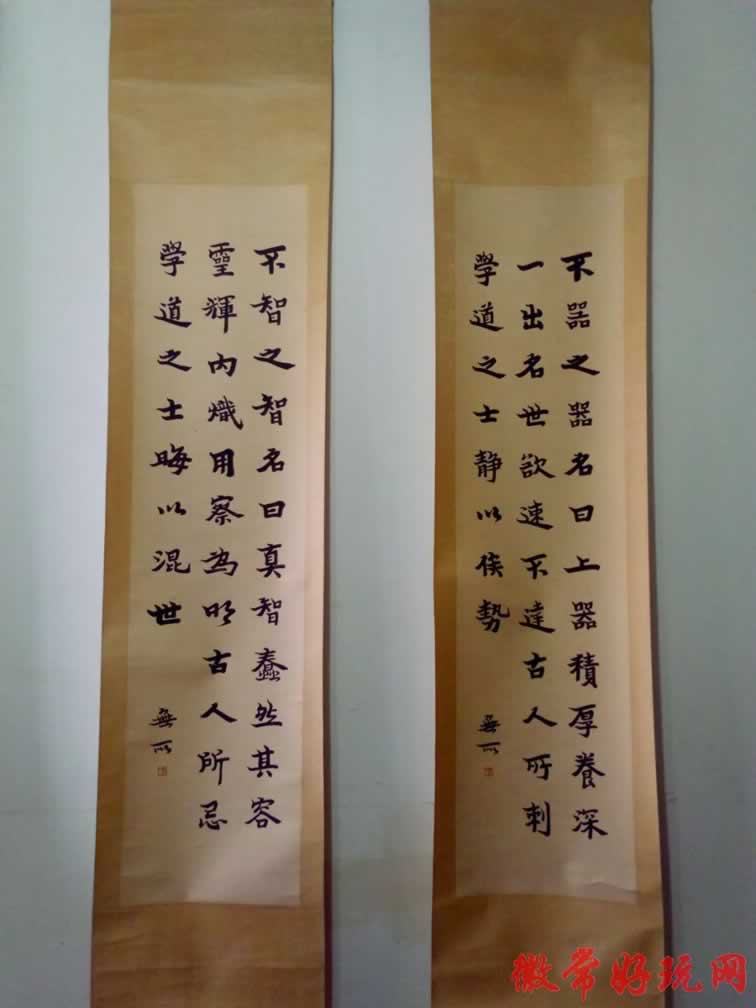 不器之器名曰上器積厚養深
一出名世欲速不達古人所刺
學道之士静以俟勢
無所
不智之智名曰真智蠢然其容
靈輝内熾用察為明古人所忌
學道之士晦以混世
無所
徽常好玩网